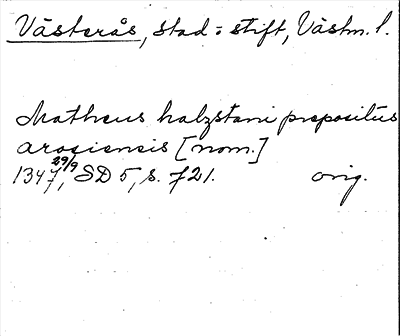 Västerås, stad o stift, Västm. l.
Matheus halzstani prepositus
arosiensis [nom.]
1347 29/9, SD 5, s. 721. orig.